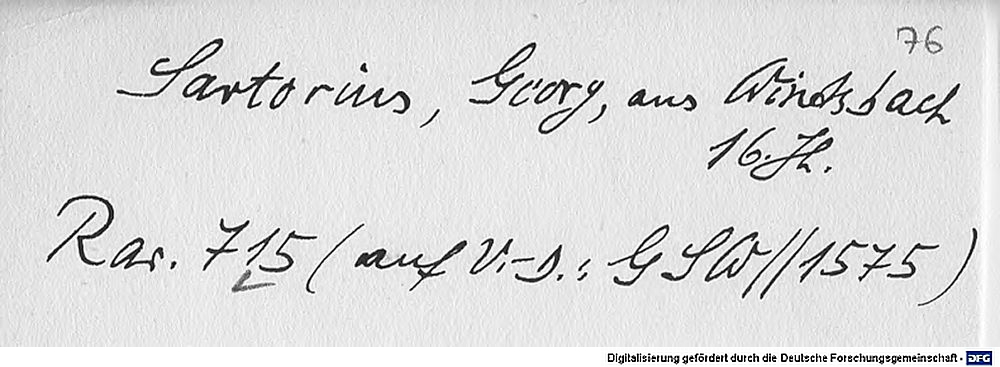 76
Sartorius, Georg, aus Windsbach
16. Jh.
Rar. 715 (auf V.-D.: G S W // 1575)
Digitalisierung gefördert durch die Deutsche Forschungsgemeinschaft - DFG